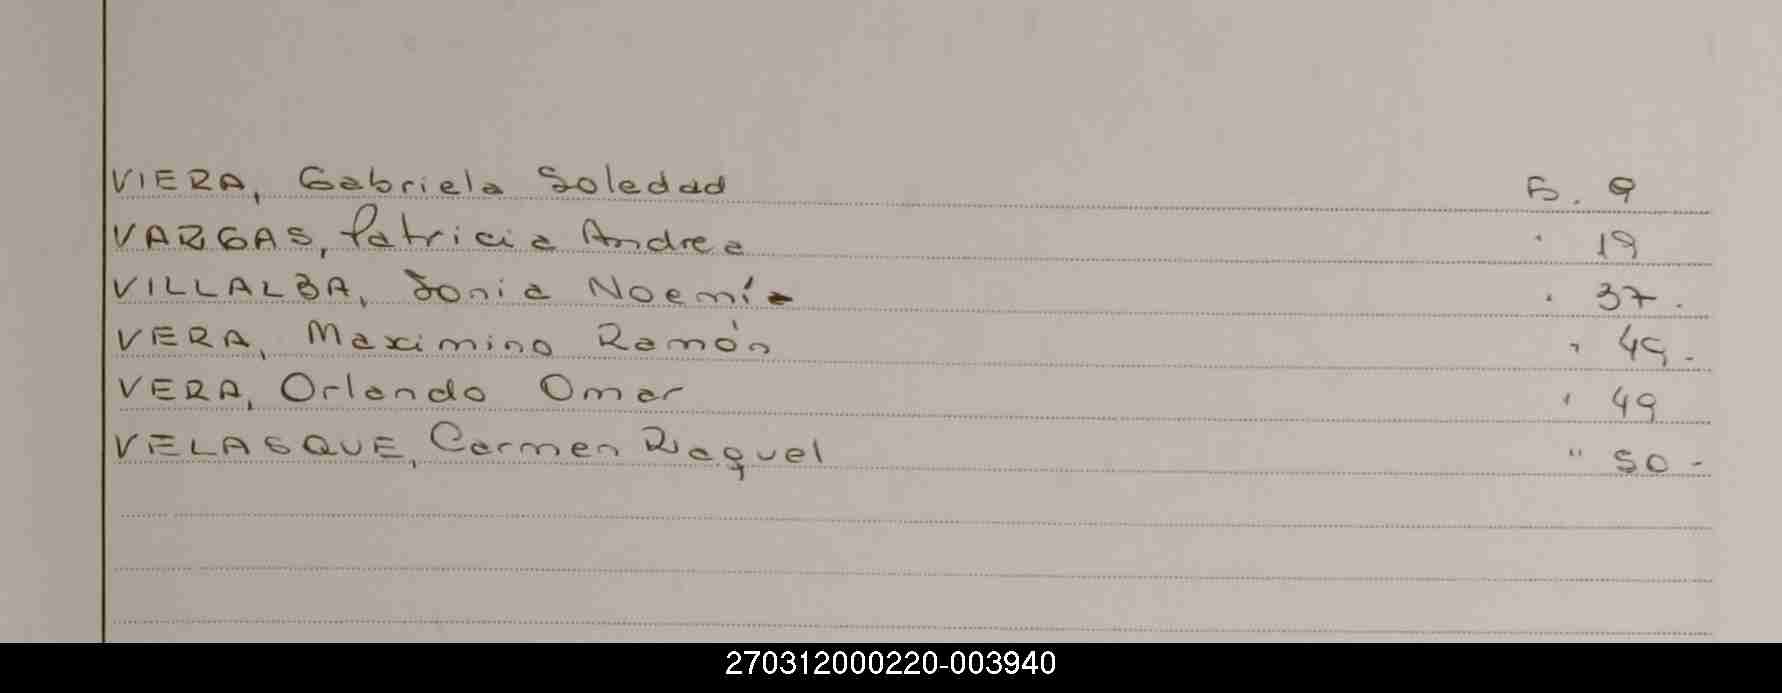 VIERA, Gabriela Soledad Fs. 9
VARGAS, Patricia Andrea " 19
VILLALBA, Sonia Noemí- " 37.
VERA, Maximino Ramón " 49-
VERA, Orlando Omar " 49
VELASQUE, Carmen Raquel " 50-
270312000220-003940